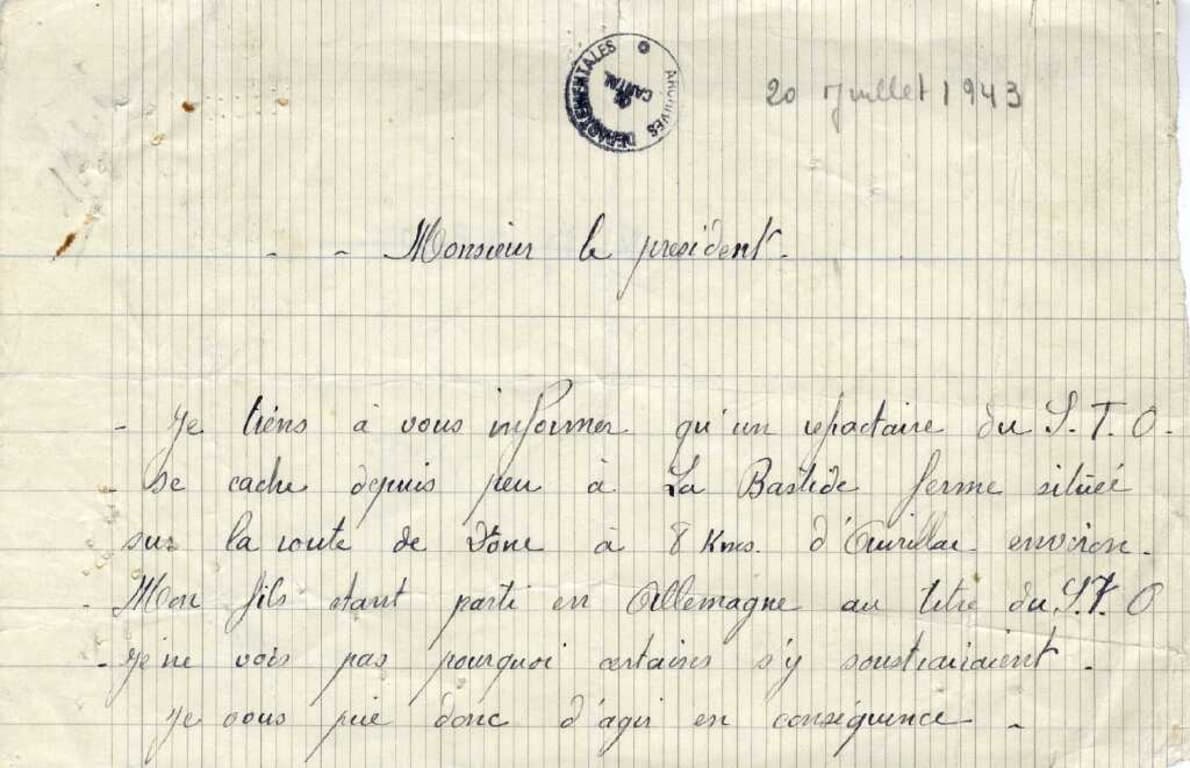 ARCHIVES DÉPARTEMENTALES
CANTAL
20 Juillet 1943
- - Monsieur le president.
- Je tiens à vous informer qu'un refractaire du S.T.O.
- se cache depuis peu à La Bastide ferme située
sur la route de à 8 Kms. d'Aurillac environ.
- Mon fils étant parti en Allemagne au titre du S.T.O
- je ne vois pas pourquoi certaines s'y soustrairaient.
Je vous prie donc d'agir en conséquence -